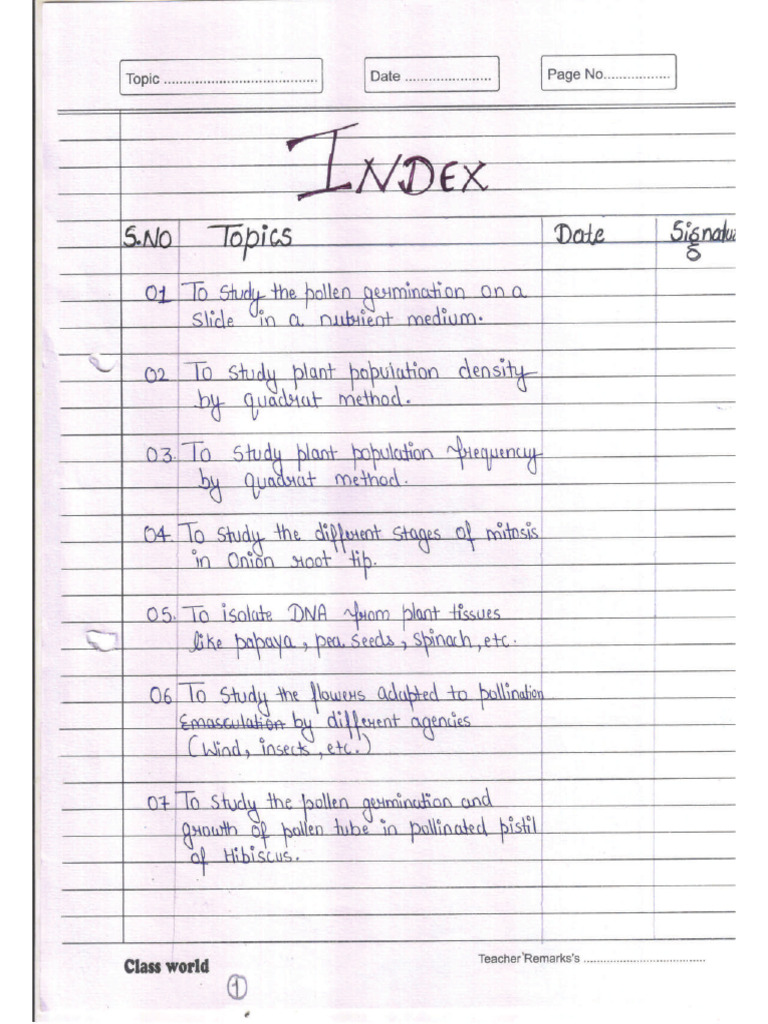 Topic ......................................
Date ......................
Page No.................
INDEX
S.NO Topics Date Signatu
01 To study the pollen germination on a
slide in a nutrient medium.
02 To study plant population density
by quadrat method.
03. To study plant population frequency
by quadrat method.
04. To study the different stages of mitosis
in Onion root tip.
05. To isolate DNA from plant tissues
like papaya, pea seeds, spinach, etc.
06 To study the flowers adapted to pollination
Emasculation by different agencies
(Wind, insects, etc.)
07 To study the pollen germination and
growth of pollen tube in pollinated pistil
of Hibiscus.
Class world
Teacher Remarks's ...................................
1